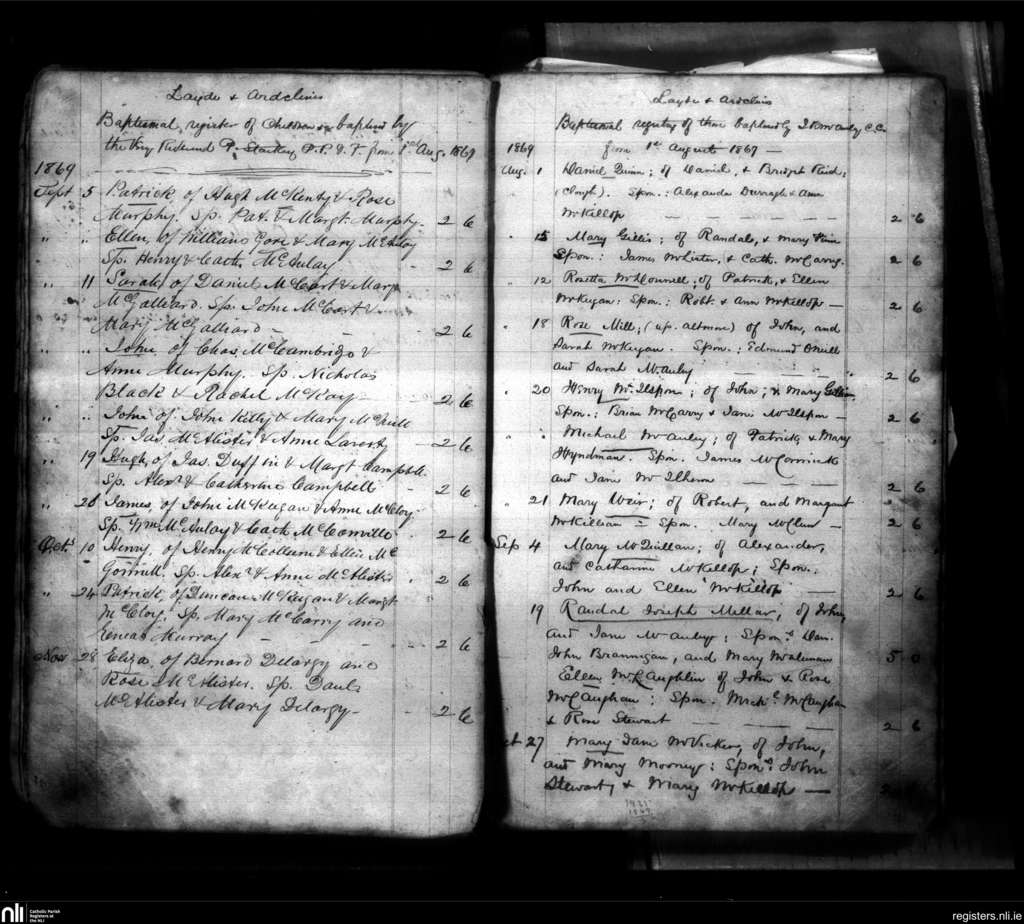 Layde & Ardclinis
Baptismal register of Children baptised by
the Very Reverend P. Starkey P.P. V.F. from 1st Aug. 1869
1869
Sept 5 Patrick, of Hugh McKenty & Rose
Murphy. Sp. Pat. & Margt. Murphy. 2 6
" " Ellen, of William Gore & Mary McAulay
Sp. Henry & Cath. McAulay 2 6
" 11 Sarah, of Daniel McCart & Mary
McGalliard. Sp. John McCart &
Mary McGalliard - - 2 6
" " John, of Chas. McCambridge &
Anne Murphy. Sp. Nicholas
Black & Rachel McKay - 2 6
" " John of John Kelly & Mary McNeill
Sp. Jas. McAlister & Anne - 2 6
" 19 Hugh, of Jas. Duffin & Margt Campbell
Sp. Alexr & Catherine Campbell 2 6
" 26 James, of John McKeegan & Anne McCloy
Sp. Wm McAulay & Cath. McConville 2 6
Oct. 10 Henry, of Henry McCollum & Ellen Mc
Sp. Alexr & Anne McAlister 2 6
" 24 Patrick, of Duncan McKeegan & Margt
McCloy. Sp. Mary McCarry and
Eneas Murray - - 2 6
Nov 28 Eliza, of Bernard Delargy and
Rose McAlister. Sp. Daniel
McAlister & Mary Delargy - 2 6
Layde & Ardclinis
Baptismal registry of those baptised by C.C.
1869 from 1st August 1869 —
Aug. 1 Daniel Quinn; of Daniel, & Bridget Reid;
(Clough). Spon.: Alexander Darragh & Ann
McKillop — — — — 2 6
" 15 Mary Gillis; of Randal, & Mary
Spon.: James McLister, & Cath. McCarry. 2 6
" 12 Rosetta McDonnell; of Patrick, & Ellen
McKeegan: Spon.: Robt. & Ann McKillop — 2 6
" 18 Rose Mill; (up. altmore) of John, and
Sarah McKeegan. Spon.: Edmund O'Neill
and Sarah McAuley — — — 2 6
" 20 Henry McIlspon; of John; & Mary
Spon.: Brian McCarry & Jane McIlspon — 2 6
" " Michael McAuley; of Patrick, & Mary
Hyndman. Spon. James McCormick
and Jane McIlheron — — — 2 6
" 21 Mary Weir; of Robert, and Margaret
McKillian = Spon. Mary McClure — 2 6
Sep 4 Mary McQuillan; of Alexander,
and Catharine McKillop; Spon.:
John and Ellen McKillop — 2 6
19 Randal Joseph Millar, of John,
and Jane McAuley: Spon.s Dan.
John Brannigan, and Mary 5 0
Ellen McCaughlin of John & Rose
McCaughan: Spon. Michl. McCaughan
& Rose Stewart — — — 2 6
27 Mary Jane McVicker, of John,
and Mary Mooney: Spon.s John
Stewart, & Mary McKillop —
nli
Catholic Parish
Registers at
the NLI
registers.nli.ie